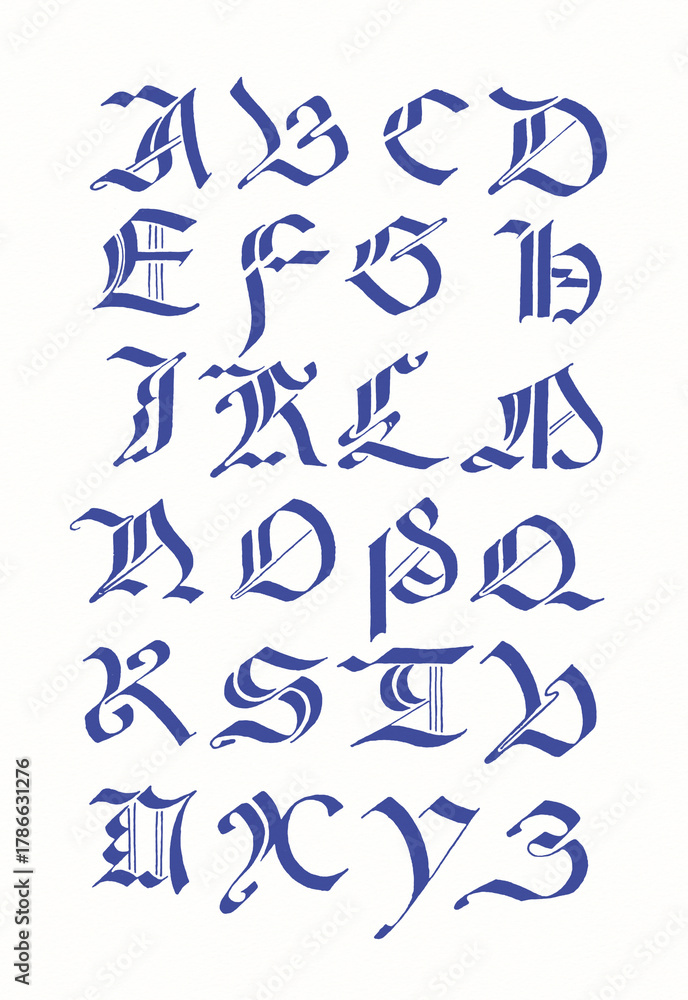 A B C D
E F G H
I K L M
N O P Q
R S T V
X Y Z
Adobe Stock | #1786631276